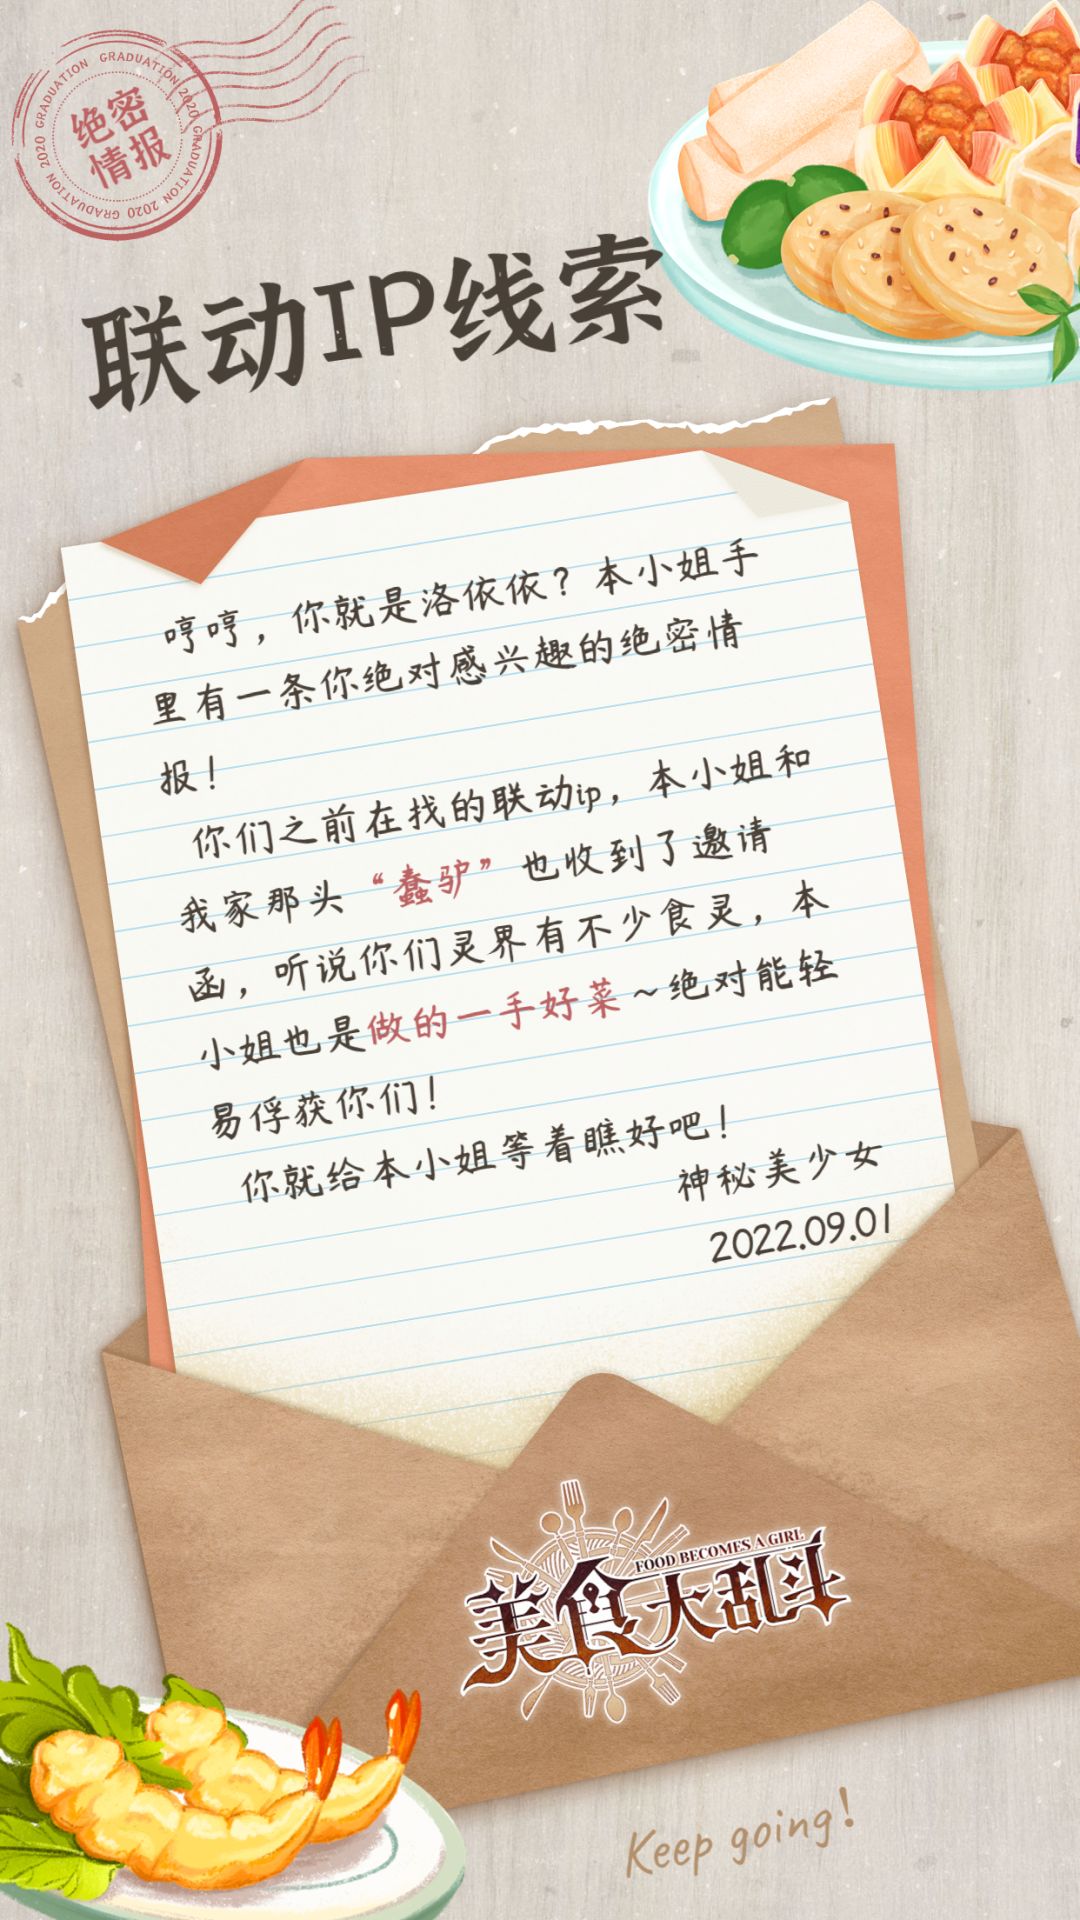 GRADUATION 2020 GRADUATION 2020 GRADUATION 2020 GRADUATION
绝密
情报
联动IP线索
哼哼，你就是洛依依？本小姐手
里有一条你绝对感兴趣的绝密情
报！
你们之前在找的联动ip，本小姐和
我家那头“蠢驴”也收到了邀请
函，听说你们灵界有不少食灵，本
小姐也是做的一手好菜～绝对能轻
易俘获你们！
你就给本小姐等着瞧好吧！
神秘美少女
2022.09.01
FOOD BECOMES A GIRL
美食大乱斗
Keep going!